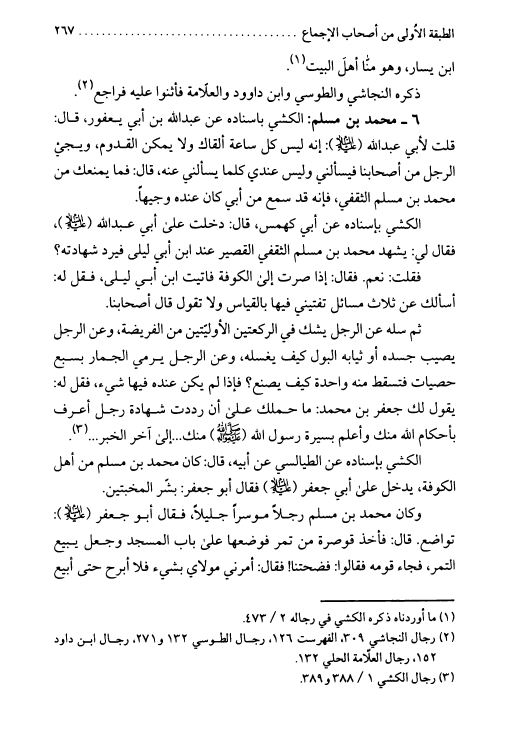 الطبقة الأولى من أصحاب الإجماع ...................................... ٢٦٧
ابن يسار، وهو منّا أهلَ البيت(١).
ذكره النجاشي والطوسي وابن داوود والعلّامة فأثنوا عليه فراجع(٢).
٦ ـ محمد بن مسلم: الكشي باسناده عن عبدالله بن أبي يعفور، قال:
قلت لأبي عبدالله (عليه السلام): إنه ليس كل ساعة ألقاك ولا يمكن القدوم، ويجيْ
الرجل من أصحابنا فيسألني وليس عندي كلما يسألني عنه، قال: فما يمنعك من
محمد بن مسلم الثقفي، فإنه قد سمع من أبي كان عنده وجيهاً.
الكشي بإسناده عن أبي كهمس، قال: دخلت علىٰ أبي عبدالله (عليه السلام)،
فقال لي: يشهد محمد بن مسلم الثقفي القصير عند ابن أبي ليلى فيرد شهادته؟
فقلت: نعم. فقال: إذا صرت إلىٰ الكوفة فاتيت ابن أبي ليلى، فقل له:
أسألك عن ثلاث مسائل تفتيني فيها بالقياس ولا تقول قال أصحابنا.
ثم سله عن الرجل يشك في الركعتين الأوليّتين من الفريضة، وعن الرجل
يصيب جسده أو ثيابه البول كيف يغسله، وعن الرجل يرمي الجمار بسبع
حصيات فتسقط منه واحدة كيف يصنع؟ فإذا لم يكن عنده فيها شيء، فقل له:
يقول لك جعفر بن محمد: ما حملك علىٰ أن رددت شهادة رجل أعرف
بأحكام الله منك وأعلم بسيرة رسول الله (صلى الله عليه وآله) منك...إلىٰ آخر الخبر...(٣).
الكشي بإسناده عن الطيالسي عن أبيه، قال: كان محمد بن مسلم من أهل
الكوفة، يدخل علىٰ أبي جعفر (عليه السلام) فقال أبو جعفر: بشّر المخبتين.
وكان محمد بن مسلم رجلاً موسراً جليلاً، فقال أبو جعفر (عليه السلام):
تواضع. قال: فأخذ قوصرة من تمر فوضعها علىٰ باب المسجد وجعل يبيع
التمر، فجاء قومه فقالوا: فضحتنا! فقال: أمرني مولاي بشيء فلا أبرح حتى أبيع
(١) ما أوردناه ذكره الكشي في رجاله ٢ / ٤٧٣.
(٢) رجال النجاشي ٣٠٩، الفهرست ١٢٦، رجال الطوسي ١٣٢ و٢٧١، رجال ابن داود
١٥٢، رجال العلّامة الحلي ١٣٢.
(٣) رجال الكشي ١ / ٣٨٨ و٣٨٩.